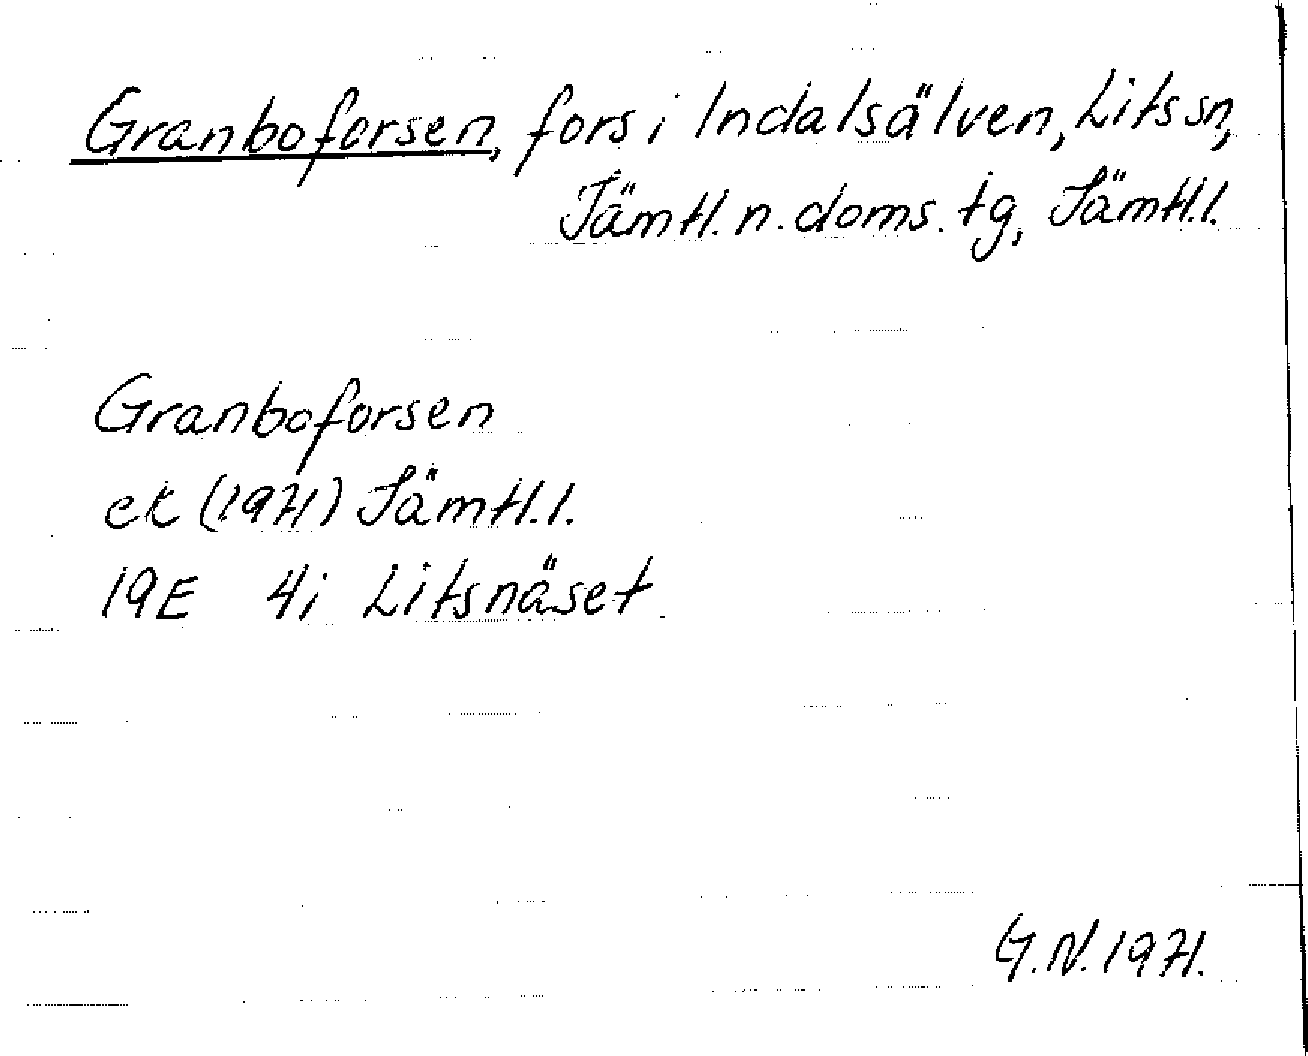 Granboforsen, fors i Indalsälven, Lits sn,
Jämtl. n. doms. tg, Jämtl. l.
Granboforsen
ek (1971) Jämtl. l.
19E 4i Litsnäset
G.N. 1971.